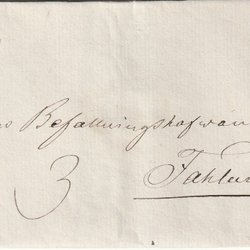 Befallningshafvan
3
Fahlu